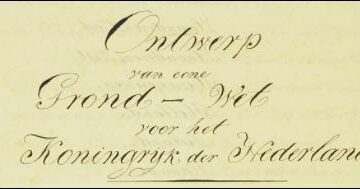 Ontwerp
van eene
Grond - Wet
voor het
Koningryk der Nederlan